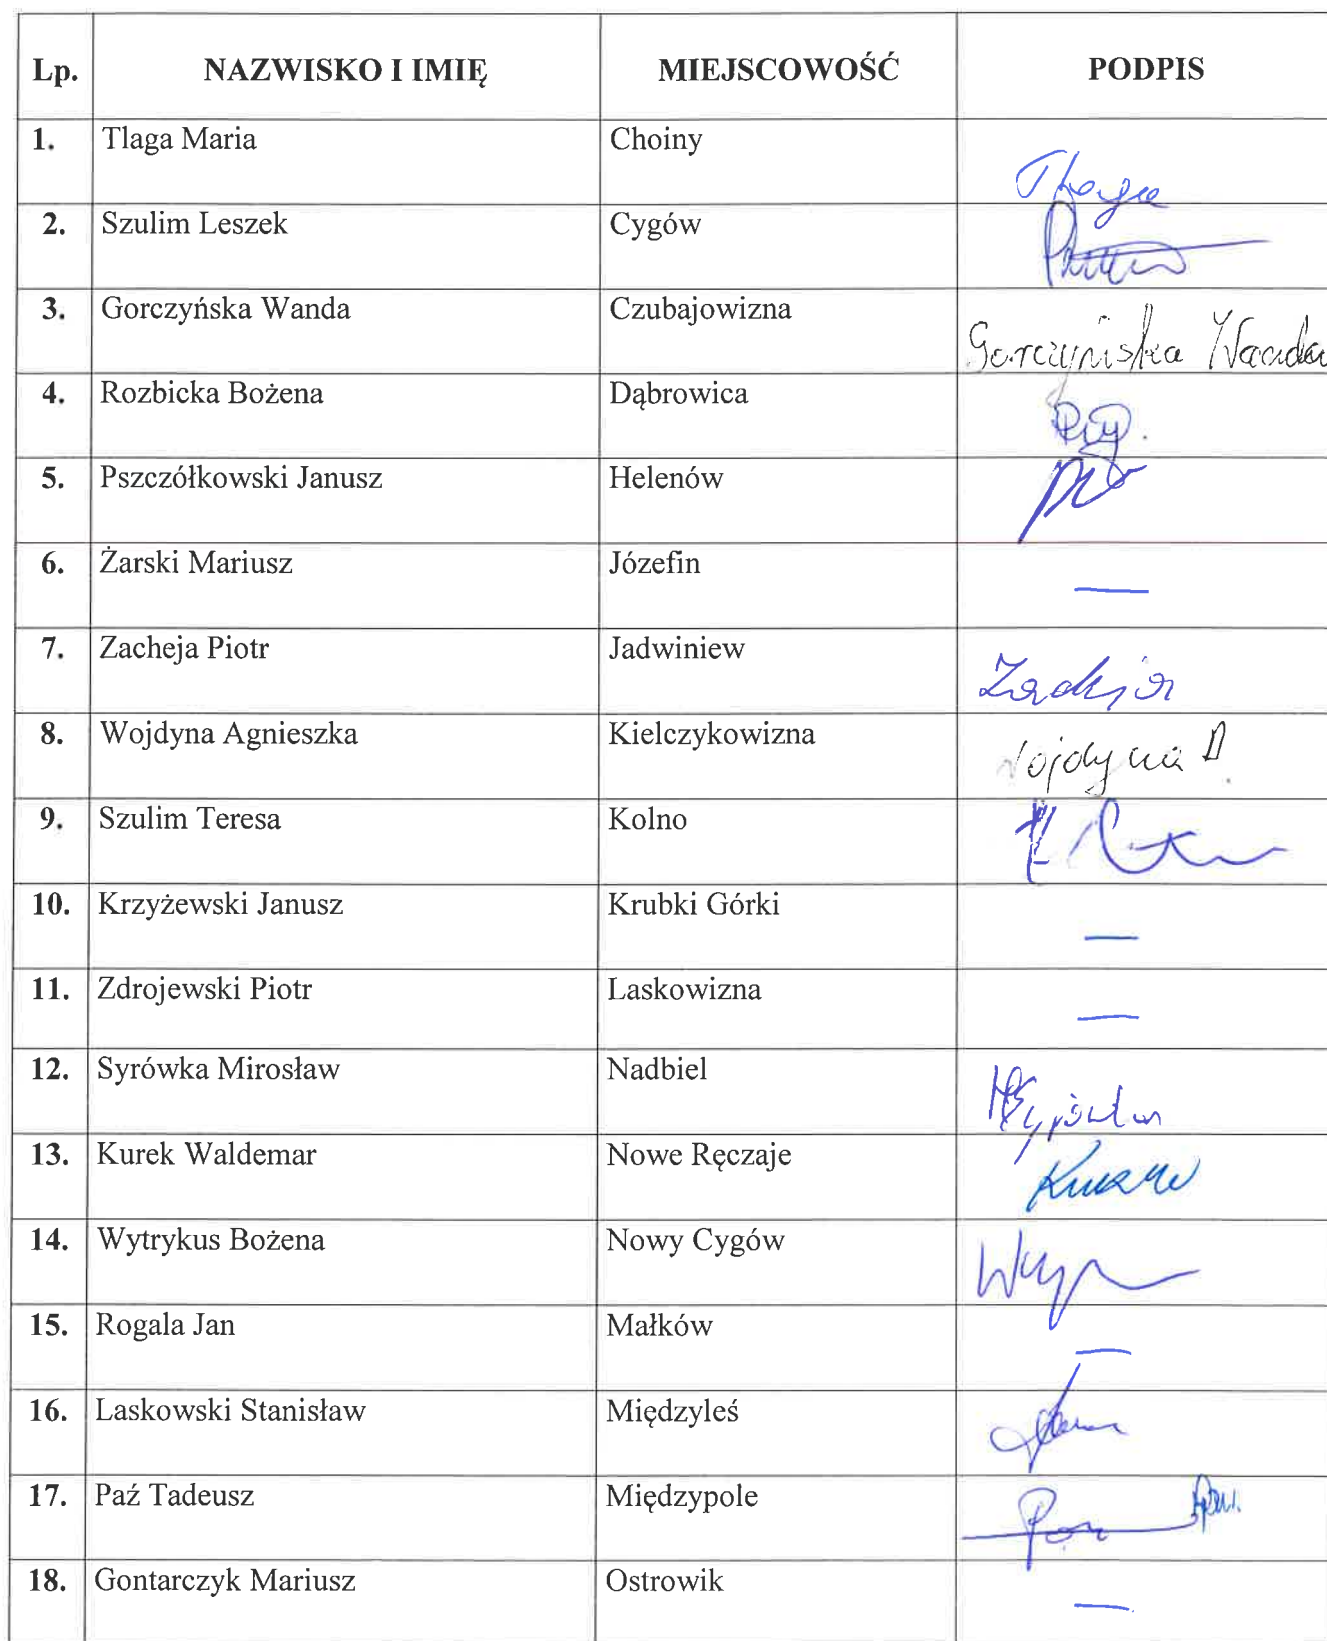 Lp. NAZWISKO I IMIĘ MIEJSCOWOŚĆ PODPIS
1. Tlaga Maria Choiny Tlaga
2. Szulim Leszek Cygów
3. Gorczyńska Wanda Czubajowizna Gorczyńska Wanda
4. Rozbicka Bożena Dąbrowica
5. Pszczółkowski Janusz Helenów
6. Żarski Mariusz Józefin —
7. Zacheja Piotr Jadwiniew Zacheja
8. Wojdyna Agnieszka Kielczykowizna Wojdyna A
9. Szulim Teresa Kolno
10. Krzyżewski Janusz Krubki Górki —
11. Zdrojewski Piotr Laskowizna —
12. Syrówka Mirosław Nadbiel
13. Kurek Waldemar Nowe Ręczaje
14. Wytrykus Bożena Nowy Cygów
15. Rogala Jan Małków —
16. Laskowski Stanisław Międzyleś
17. Paź Tadeusz Międzypole
18. Gontarczyk Mariusz Ostrowik —